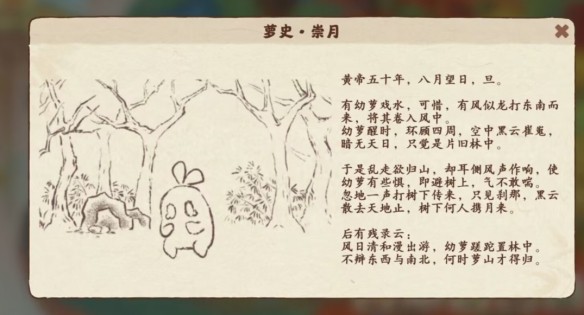 萝史·崇月
黄帝五十年，八月望日，旦。
有幼萝戏水，可惜，有风似龙打东南而
来，将其卷入风中。
幼萝醒时，环顾四周，空中黑云崔嵬，
暗无天日，只觉是片旧林中。
于是乱走欲归山，却耳侧风声作响，使
幼萝有些惧，即避树上，气不敢喘。
忽地一声打树下传来，只见刹那，黑云
散去天地止，树下何人携月来。
后有残录云：
风日清和漫出游，幼萝蹉跎置林中。
不辩东西与南北，何时萝山才得归。